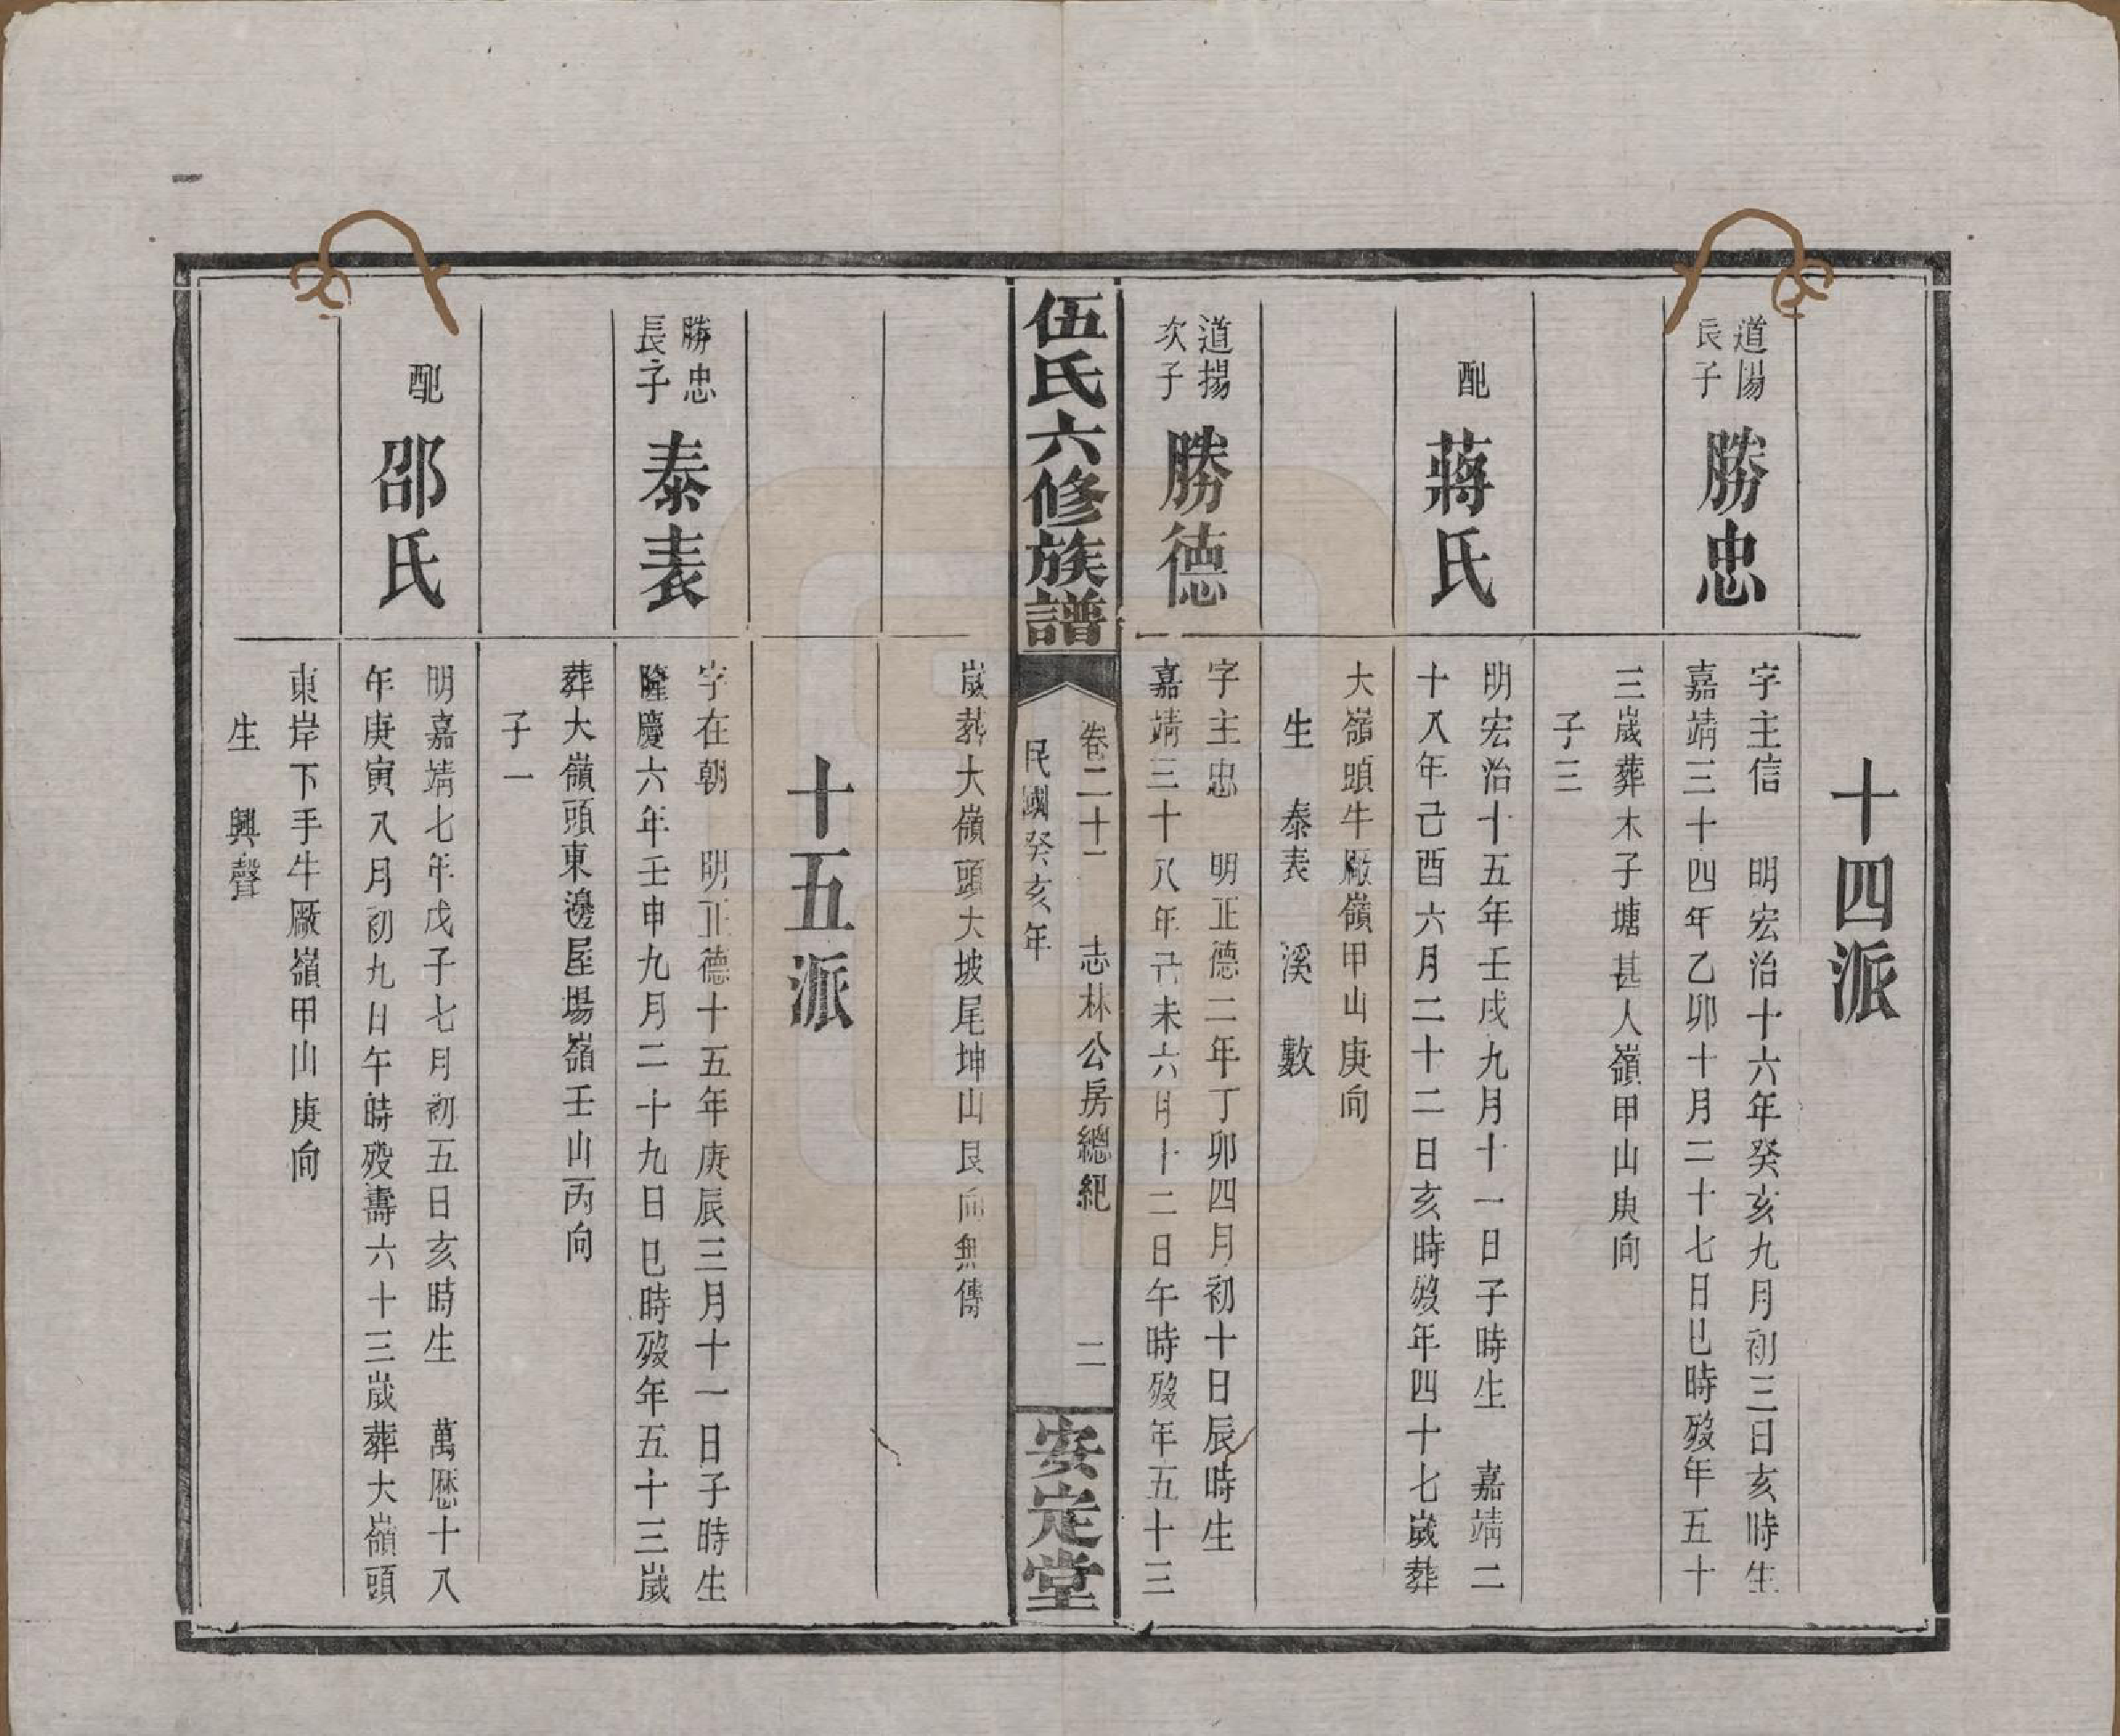 十四派
道陽
長子
勝忠
字主信 明宏治十六年癸亥九月初三日亥時生
嘉靖三十四年乙卯十月二十七日巳時歿年五十
三歲葬木子塘甚人嶺甲山庚向
子三
配
蔣氏
明宏治十五年壬戌九月十一日子時生 嘉靖二
十八年己酉六月二十二日亥時歿年四十七歲葬
大嶺頭牛厰嶺甲山庚向
生 泰表 溪 數
道揚
次子
勝德
字主忠 明正德二年丁卯四月初十日辰時生
嘉靖三十八年己未六月十二日午時歿年五十三
伍氏六修族譜
卷二十一 志林公房總紀 二
民國癸亥年
安定堂
歲葬大嶺頭大坡尾坤山艮向無傳
十五派
勝忠
長子
泰表
字在朝 明正德十五年庚辰三月十一日子時生
隆慶六年壬申九月二十九日巳時歿年五十三歲
葬大嶺頭東邊屋場嶺壬山丙向
子一
配
邵氏
明嘉靖七年戊子七月初五日亥時生 萬歷十八
年庚寅八月初九日午時歿壽六十三歲葬大嶺頭
東岸下手牛厰嶺甲山庚向
生 興聲